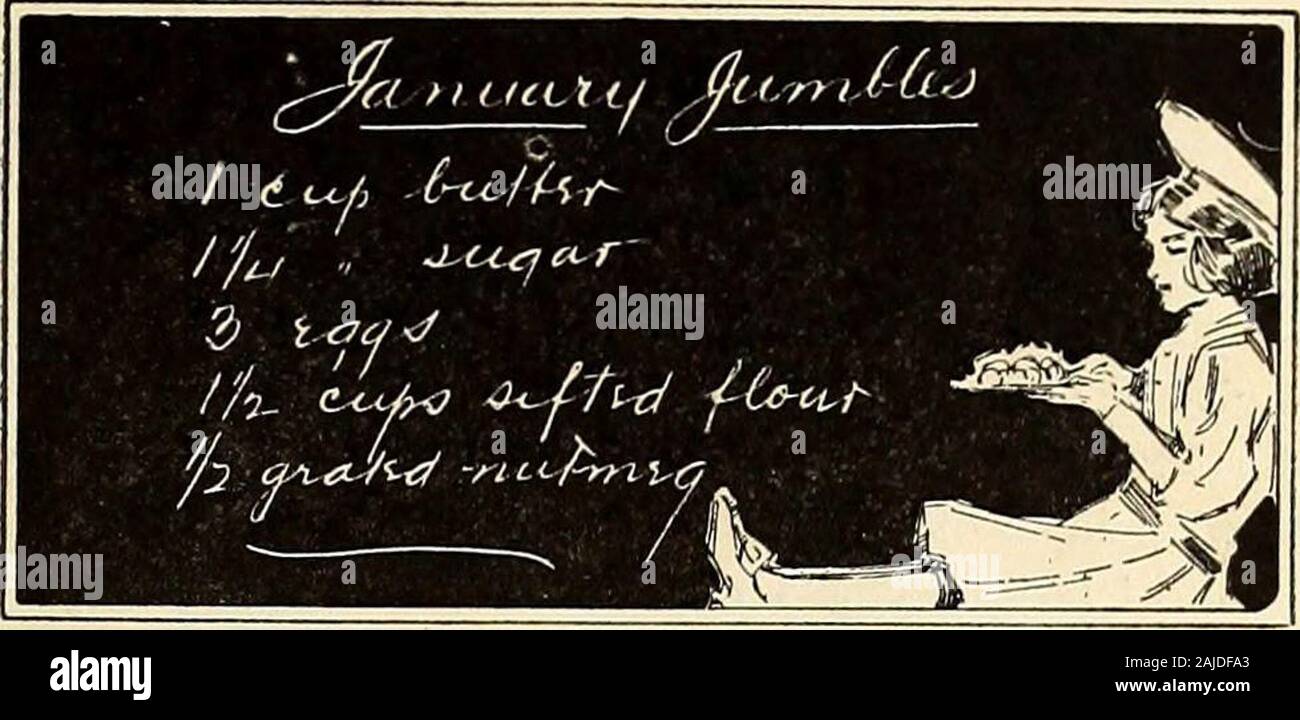 January Jumbles
1 cup butter
1 1/4 " sugar
3 eggs
1 1/2 cups sifted flour
1/2 grated nutmeg
a alamy
alamy
Image ID: 2AJDFA3
www.alamy.com